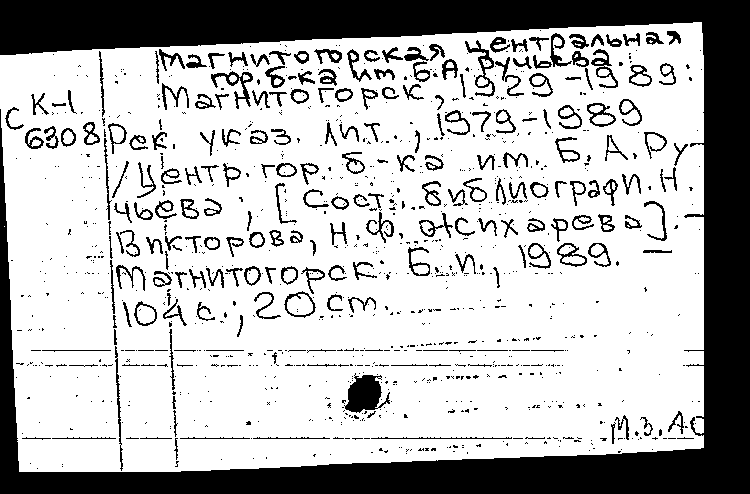 Магнитогорская центральная
гор. б-ка им. Б.А. Ручьева.
Магнитогорск, 1929-1989:
СК-1
6308
Рек. указ. лит.; 1979-1989
/Центр. гор. б-ка им. Б. А. Ру-
чьева; [Сост.: библиографи. Н.
Викторова, Н.Ф. Жихарева]. -
Магнитогорск: Б.и., 1989. -
104 с.; 20 см.
М.З. АО